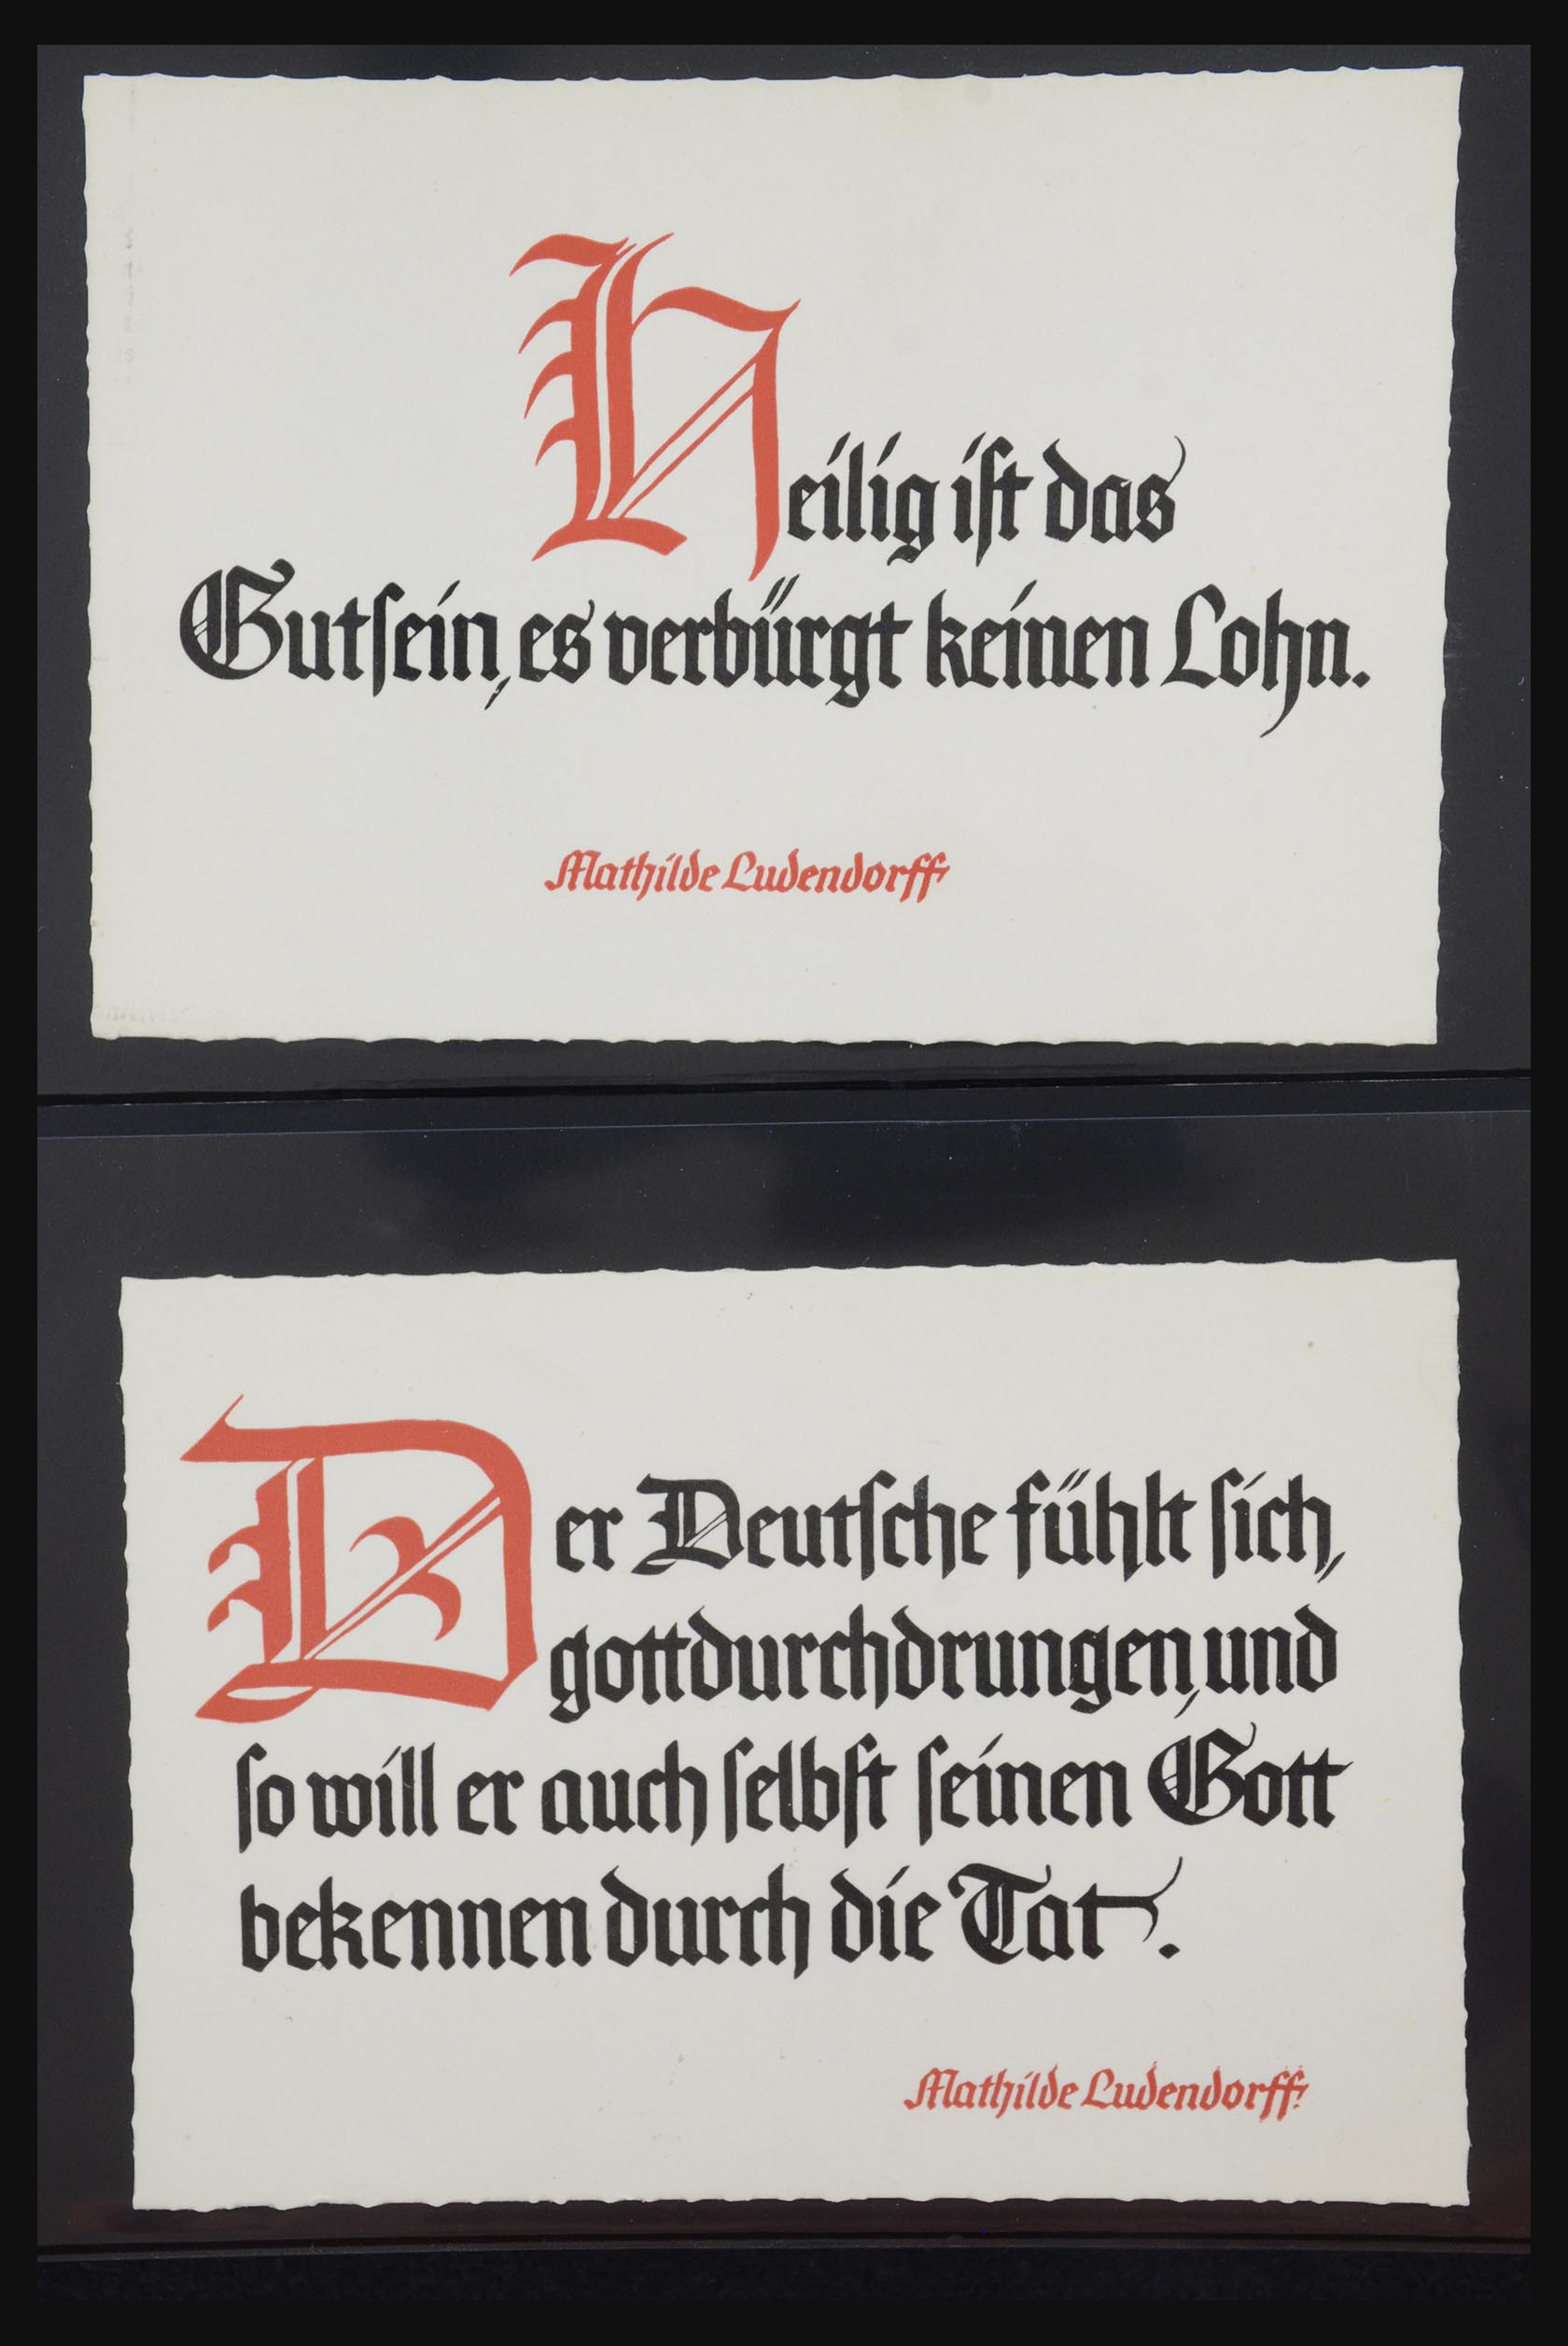 Heilig ist das
Gutsein, es verbürgt keinen Lohn.
Mathilde Ludendorff
Der Deutsche fühlt sich,
gottdurchdrungen, und
so will er auch selbst seinen Gott
bekennen durch die Tat.
Mathilde Ludendorff